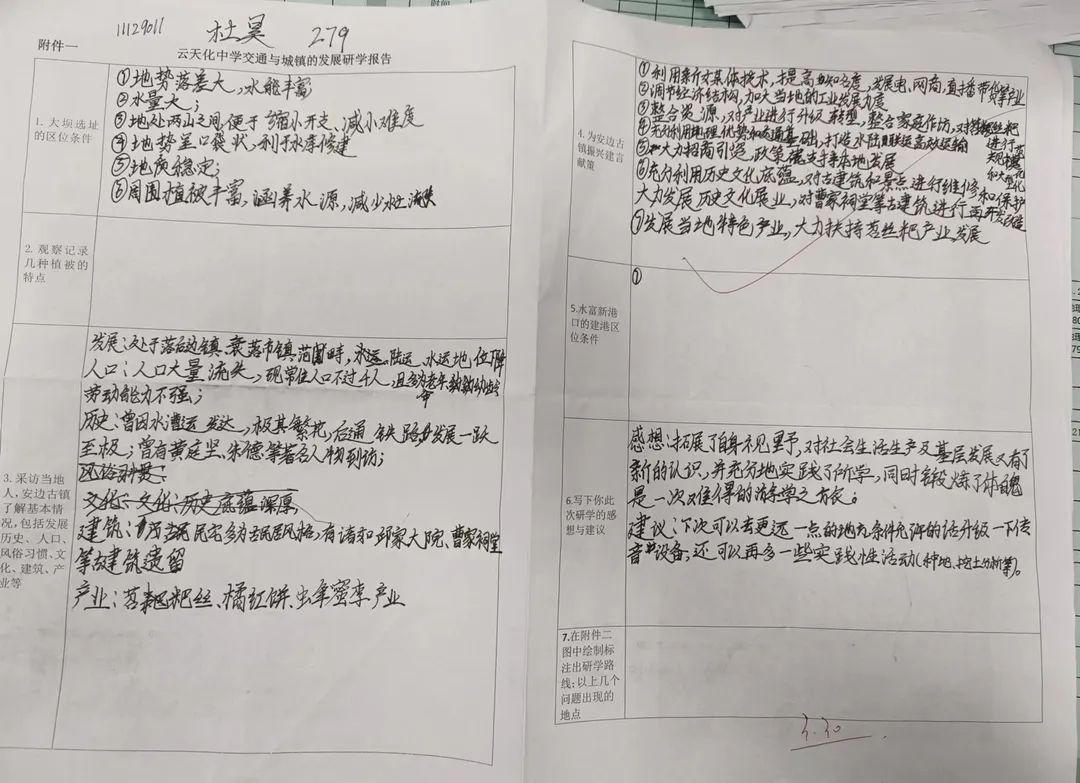 附件一
11129011 杜昊 279
云天化中学交通与城镇的发展研学报告
1. 大坝选址的区位条件
①地势落差大，水能丰富
②水量大；
③地处两山之间，便于缩小开支，减小难度
④地势呈口袋状，利于水库修建
⑤地质稳定；
⑥周围植被丰富，涵养水源，减少水土流失
2. 观察记录几种植被的特点
3. 采访当地人，安边古镇了解基本情况，包括发展历史、人口、风俗习惯、文化、建筑、产业等
发展：处于落后边镇、衰落市镇
人口：人口大量流失，现常住人口不过千人，且多为老年
劳动能力不强；
历史：曾因水漕运发达，极其繁花，后通铁路，发展一跌
至极；曾有黄庭坚、朱德等著名人物到访；
风俗习惯：
文化：文化：历史底蕴深厚
建筑：民宅多为民居风格，有诸如邱家大院、曹家祠堂
等古建筑遗留
产业：苕粑粑丝、橘红饼、虫草蜜李产业
4. 为安边古镇振兴建言献策
①利用新媒体技术，提高知名度，发展电、网商，直播带货等产业
②调节经济结构，加大当地的工业发展力度
③整合资源，对产业进行升级转型，整合家庭作坊，对苕丝粑进行
④充分利用地理优势和交通基础，打造水陆联运高效运输
⑤大力招商引资，政策倾支持本地发展
⑥充分利用历史文化底蕴，对古建筑和景点进行维修和保护
大力发展历史文化展业，对曹家祠堂等古建筑进行再开发
⑦发展当地特色产业，大力扶持苕丝粑产业发展
5.水富新港口的建港区位条件
①
6.写下你此次研学的感想与建议
感想：拓展了自身视野，对社会生活生产及基层发展又有了
新的认识，并充分地实践了所学，同时锻炼了体魄
是一次难得的游学之旅；
建议：下次可以去更远一点的地方，条件允许的话升级一下传
音设备；还可以再多一些实践性活动（种地、挖土分析等）。
7.在附件二图中绘制标注出研学路线；以上几个问题出现的地点
3.30